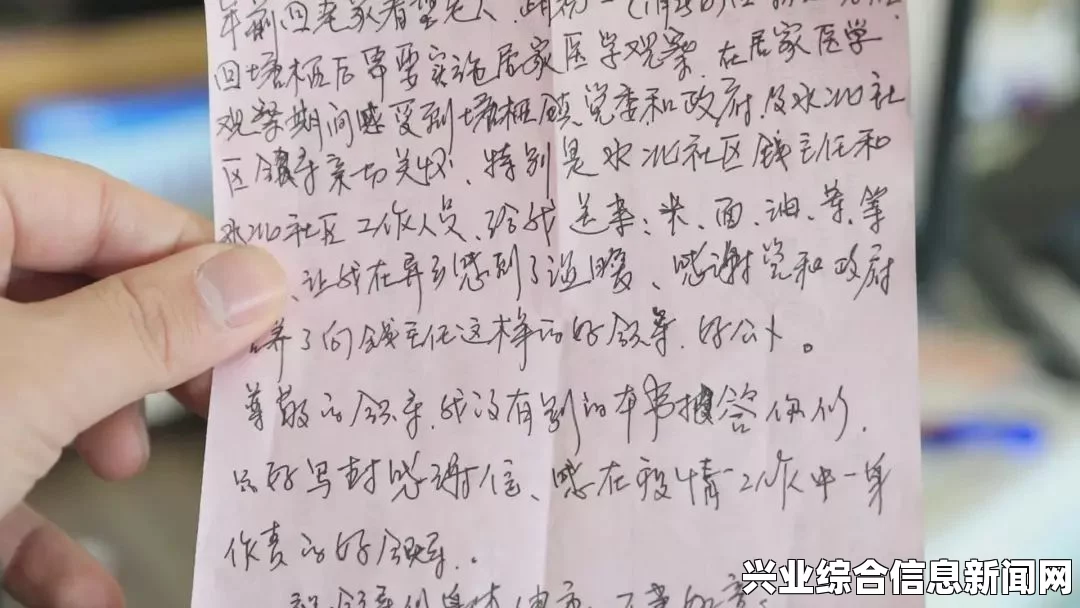 年前回老家看望老人
回塘栖后需要实施居家医学观察,在居家医学
观察期间感受到塘栖镇党委和政府及水北社
区领导亲切关怀、特别是水北社区钱主任和
水北社区工作人员、给我送来:米、面、油、菜、等
、让我在异乡感到了温暖、感谢党和政府
养了向钱主任这样的好领导、好公仆。
尊敬的领导,我没有别的本事报答你们,
只好写封感谢信、感在疫情工作中一身
作责的好领导、.
祝领导们身体健康、
兴业综合信息新闻网